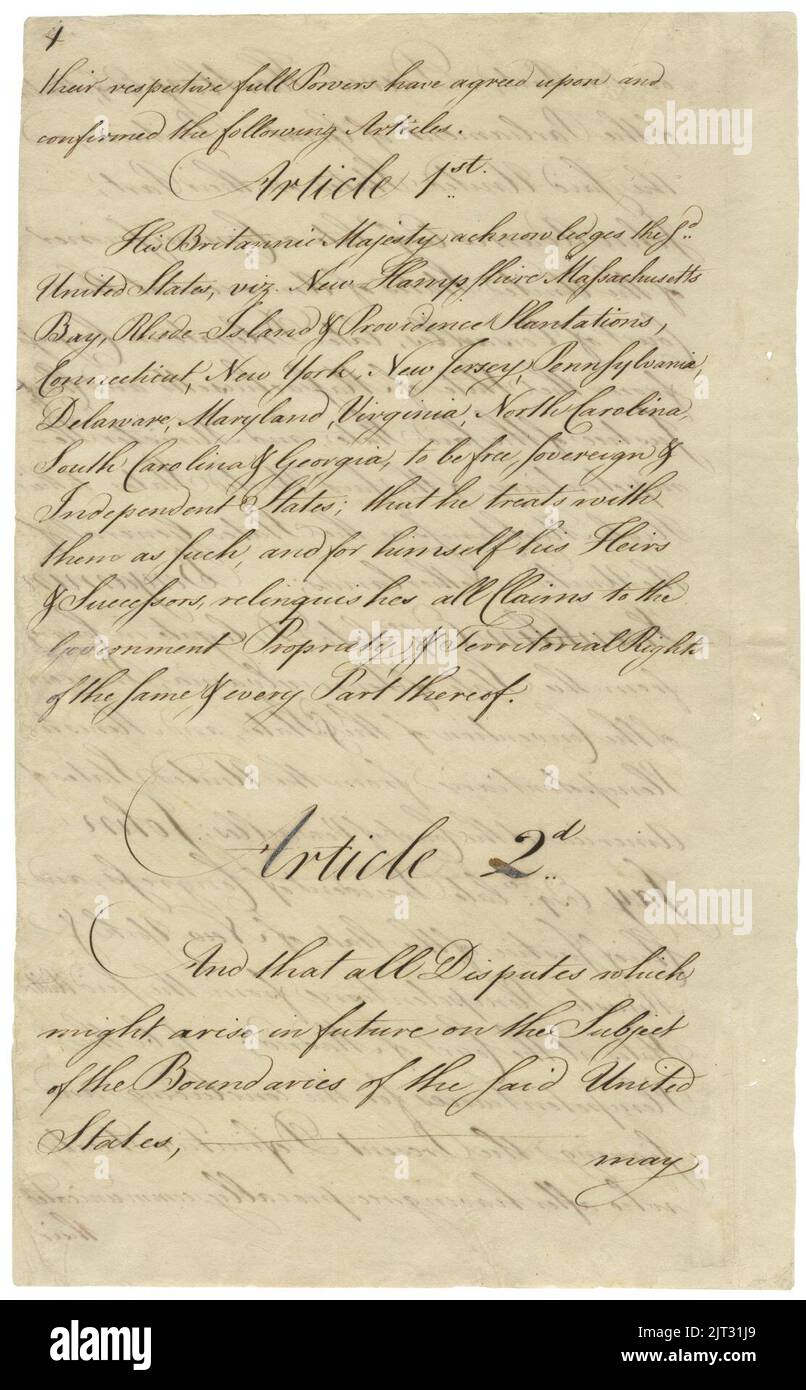 4
their respective full Powers have agreed upon and
confirmed the following Articles.
Article 1st.
His Britannic Majesty acknowledges the sd
United States, viz. New-Hampshire Massachusetts
Bay, Rhode-Island & Providence Plantations,
Connecticut, New York, New Jersey, Pennsylvania,
Delaware, Maryland, Virginia, North Carolina,
South Carolina & Georgia, to be free, sovereign &
Independent States; that he treats with
them as such, and for himself his Heirs
& Successors, relinquishes all Claims to the
Government Propriety, & Territorial Rights
of the same & every Part thereof.
Article 2d
And that all Disputes which
might arise in future on the Subject
of the Boundaries of the said United
States,
may
alamy
alamy
alamy
a
a
a
alamy
Image ID: 2JT31J9
www.alamy.com